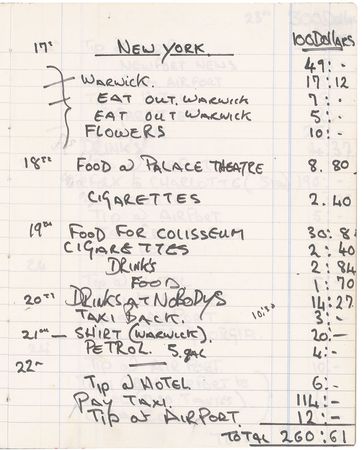 17th NEW YORK. 100 Dollars
49 : -
WARWICK. 17 : 12
EAT OUT. WARWICK 7 : -
EAT OUT WARWICK 5 : -
FLOWERS 10 : -
18th FOOD at PALACE THEATRE 8. 80
CIGARETTES 2. 40
19th FOOD FOR COLISSEUM 30 : 8
CIGARETTES 2 : 40
DRINKS 2 : 84
FOOD 1 : 70
20th DRINKS AT NOBODYS 14 : 27
TAXI BACK. 10:30 3 : -
21st — SHIRT (WARWICK). 20 : -
PETROL. 5 gal 4 : -
22nd
TIP at HOTEL 6 : -
PAY TAXI. 114 : -
TIP at AIRPORT. 12 : -
TOTAL 260 : 61